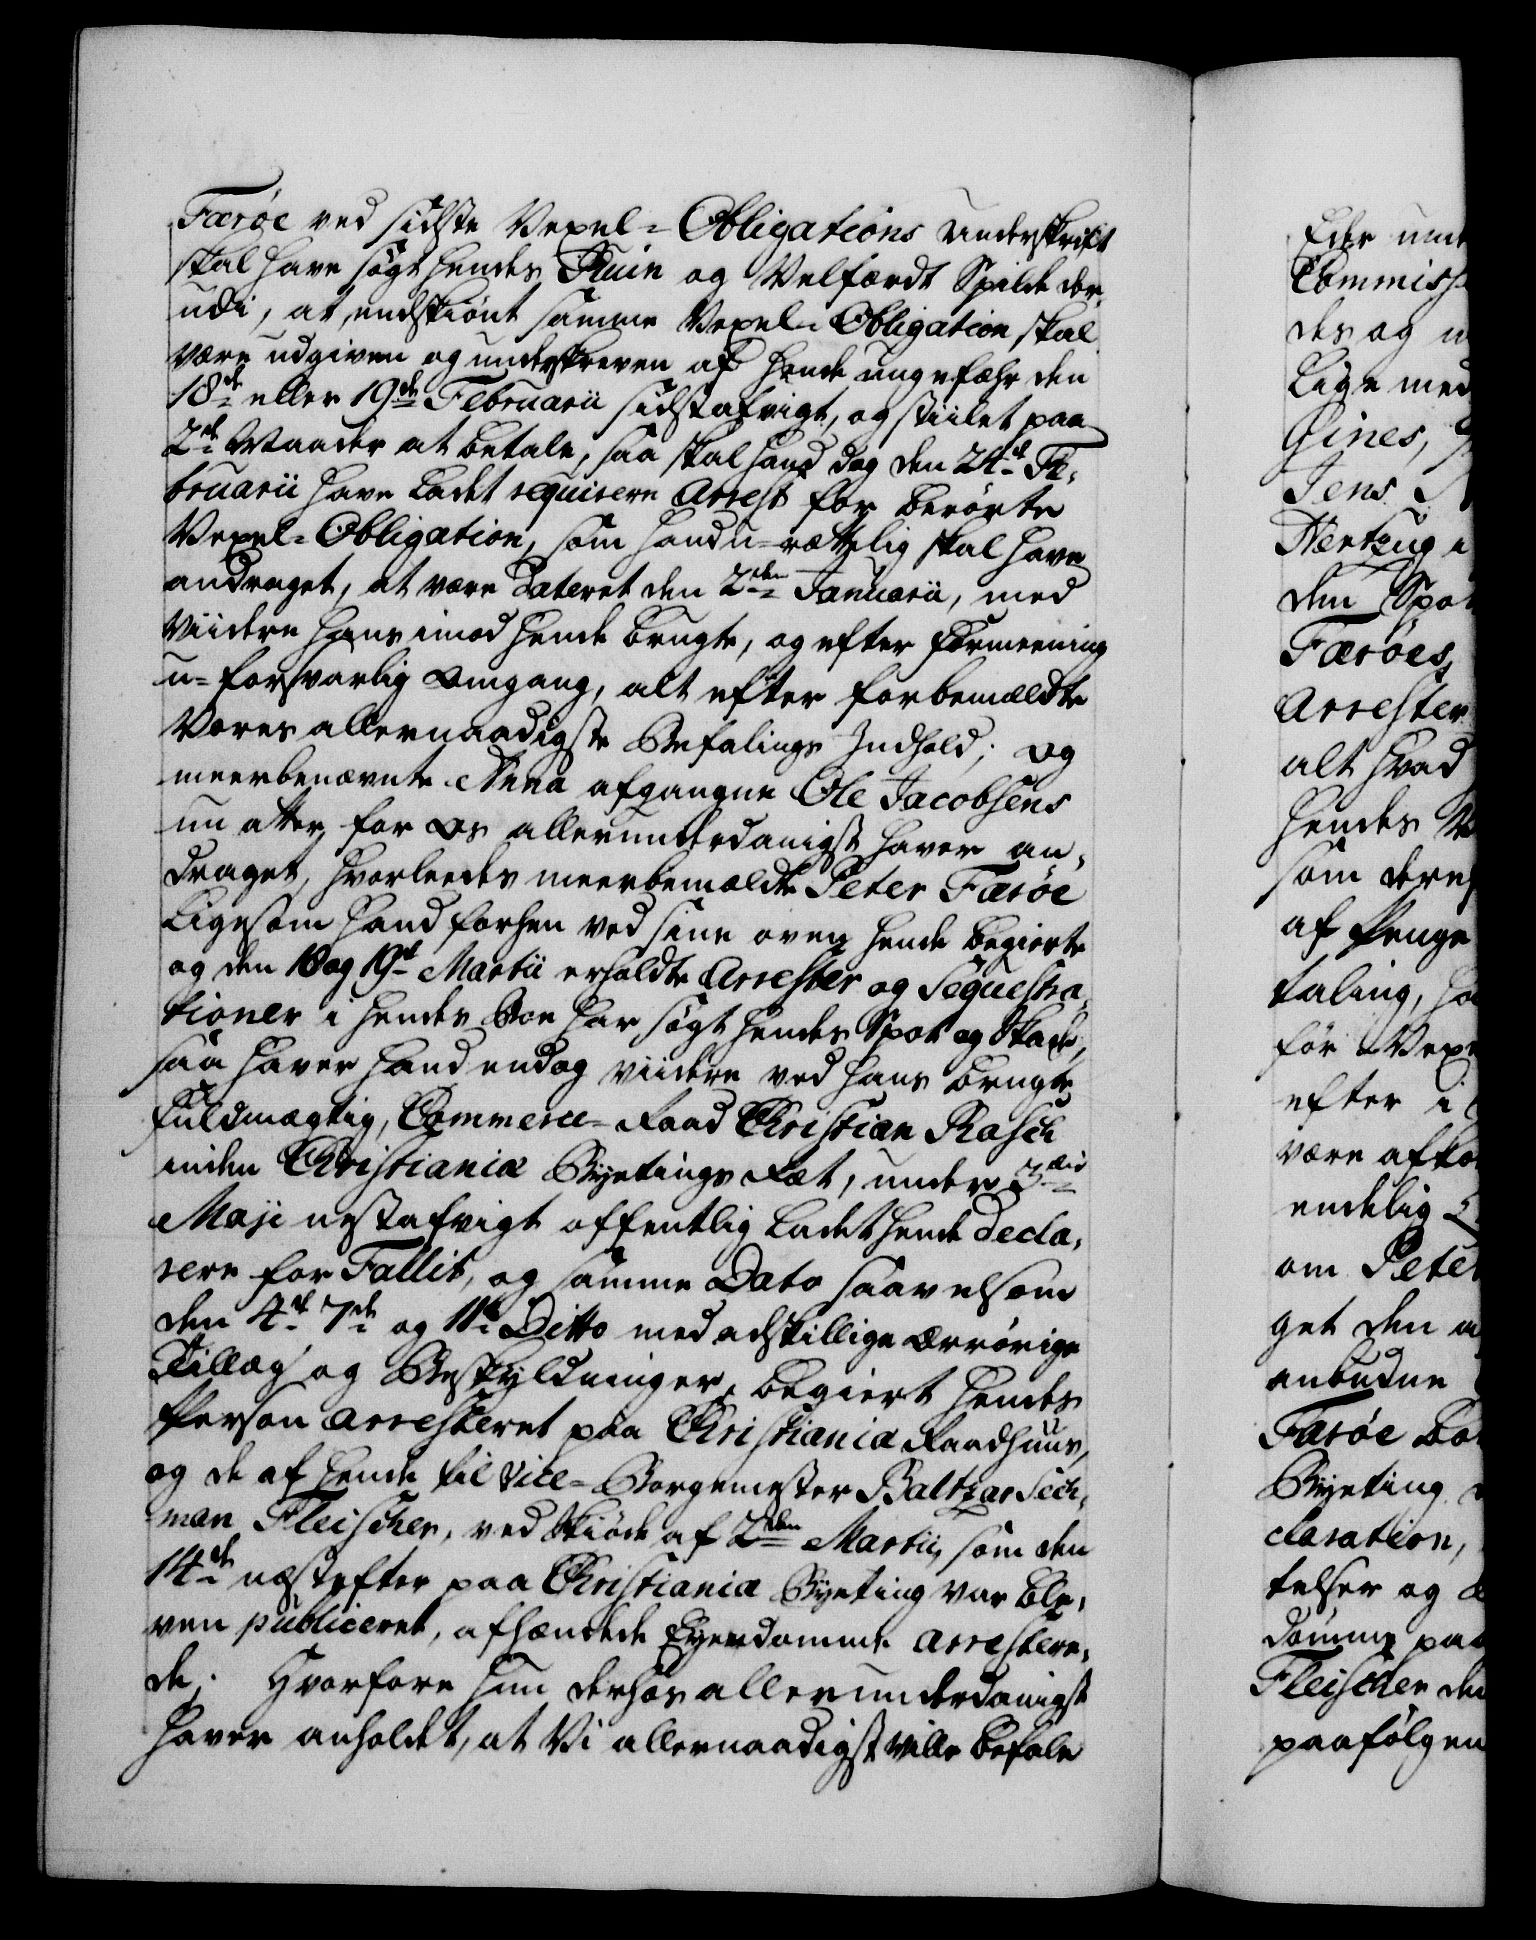 Færøe ved sidste Vexel-Obligations underskrift
skal have søgt hendes Ruin og Velfærdt Spilde der¬
udi, at, endskiønt samme Vexel-Obligation skal
være udgiven og underskreven af hende ungefæhr den
18de eller 19de Februarii sidstafvigt, og stiilet paa
2de Maaneder at betale, saa skal hand dog den 24de Fe¬
bruarii have ladet requirere Arrest for berørte
Vexel-Obligation, som hand u-rættelig skal have
andraget, at være dateret den 2den Januarii, med
Viidere hans imod hende brugte, og efter formeening
u-forsvarlig Omgang, alt efter forbemældte
Vores allernaadigste Befalings Indhold; og
meerbenævnte Anna afgangne Ole Jacobsens
nu atter for Os allerunderdanigst haver an¬
draget, hvorleedes meerbemældte Peter Færøe
Ligesom hand forhen ved sine over hende begierte
og den 18 og 19de Martii erholdte Arrester og Seqvestra¬
tioner i hendes Boe har søgt hendes Spot og Skade,
saa haver hand endog viidere ved hans brugte
Fuldmægtig, Commerce-Raad Christian Rasch
inden Christiania Byetings Ræt, under 3die
Maji nestafvigt offentlig ladet hende decla¬
rere for Fallit, og samme Dato saavelsom
den 4de 7de og 11te Ditto med adskillige ærrørige
Tillæg og Beskyldninger, begiert hendes
Person arresteret paa Christiania Raadhuus,
og de af hende til Vice-Borgemester Baltzar Sech¬
man Fleischer, ved Skiøde af 2den Martii, som den
14de næstefter paa Christiania Byeting var ble¬
ven publiceret, afhændede Eyendomme arrestere¬
de; Hvorfore hun derhos allerunderdanigst
haver anholdet, at Vi allernaadigst ville befale
Eder und
Commiss
des og u
Lige med
Gines,
Jens
Nertzug i
den Spot
Færøes,
Arrester
alt hvad
hendes V
som dere
af Penge
taling, ha
før Vexe
efter i
være afko
endelig
om Peter
get den a
anbudne
Færøe Bo
Byeting
claration,
telser og
domme paa
Fleischer den
paafølgen